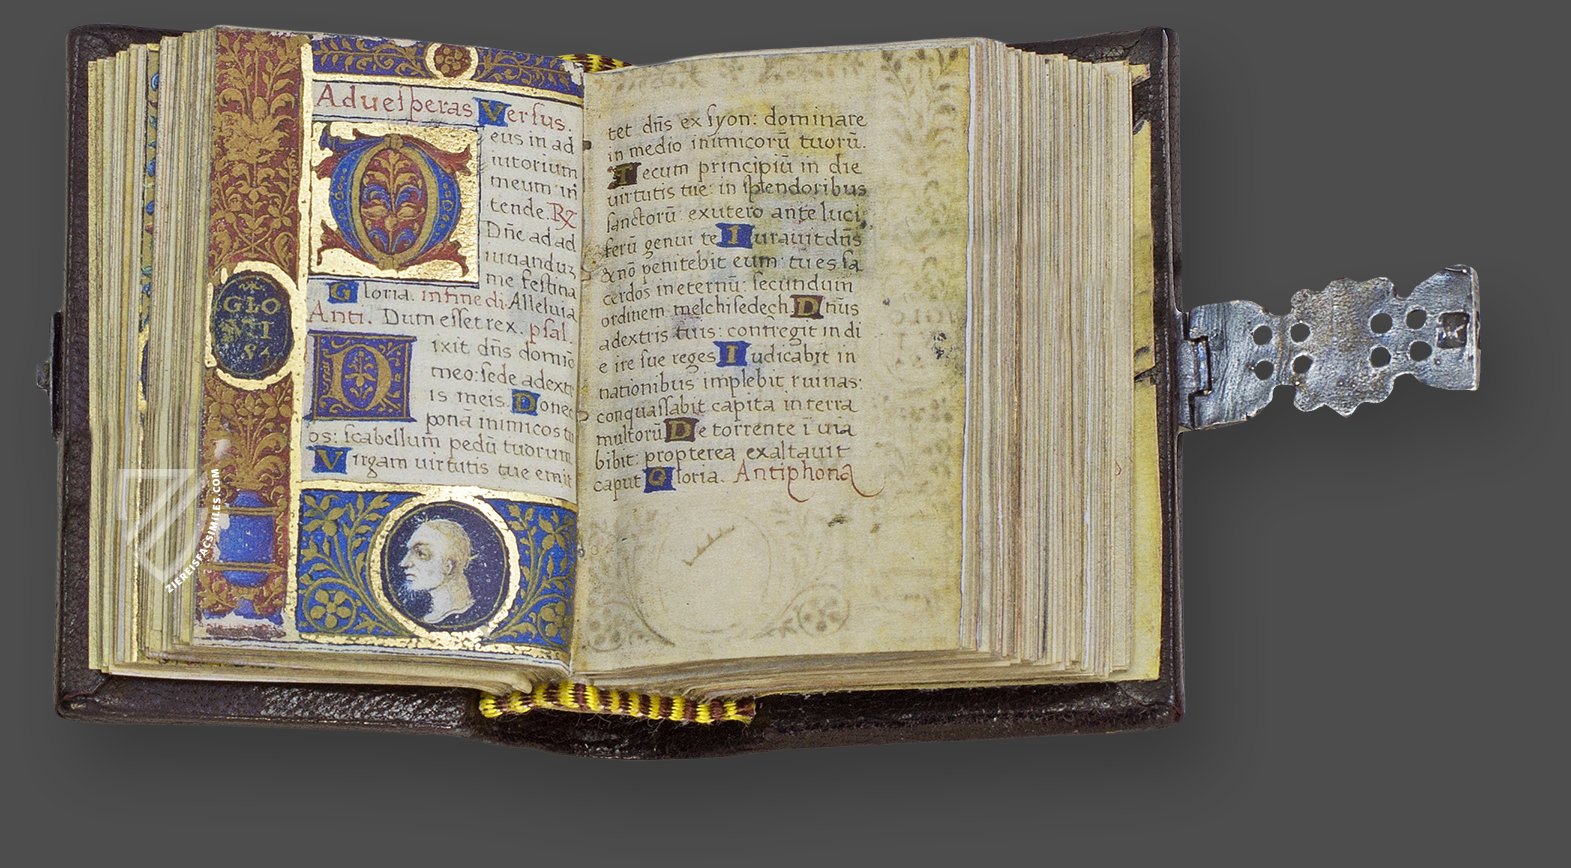 Aduesperas Versus.
eus in ad
iutorium
meum in
tende. R
Dñe ad ad
iuuanduz
me festina
Gloria. in fine di. Alleluia
Anti. Dum esset rex. psal.
ixit dñs domiō
meo: sede adext
is meis. Donec
ponā inimicos tu
os: scabellum pedū tuorum
Virgam uirtutis tue emit
GLO
tet dñs ex syon: dominare
in medio inimicorū tuorū.
Tecum principiū in die
uirtutis tue: in splendoribus
sanctorū exutero ante luci
ferū genui te Iurauit dñs
& nō penitebit eum: tu es sa
cerdos in eternū: secundum
ordinem melchisedech Dñus
adextris tuis: confregit in di
e ire sue reges Iudicabit in
nationibus implebit ruinas:
conquassabit capita in terra
multorū De torrente ī uia
bibit: propterea exaltauit
caput Gloria. Antiphona
ZIEREISFACSIMILES.COM